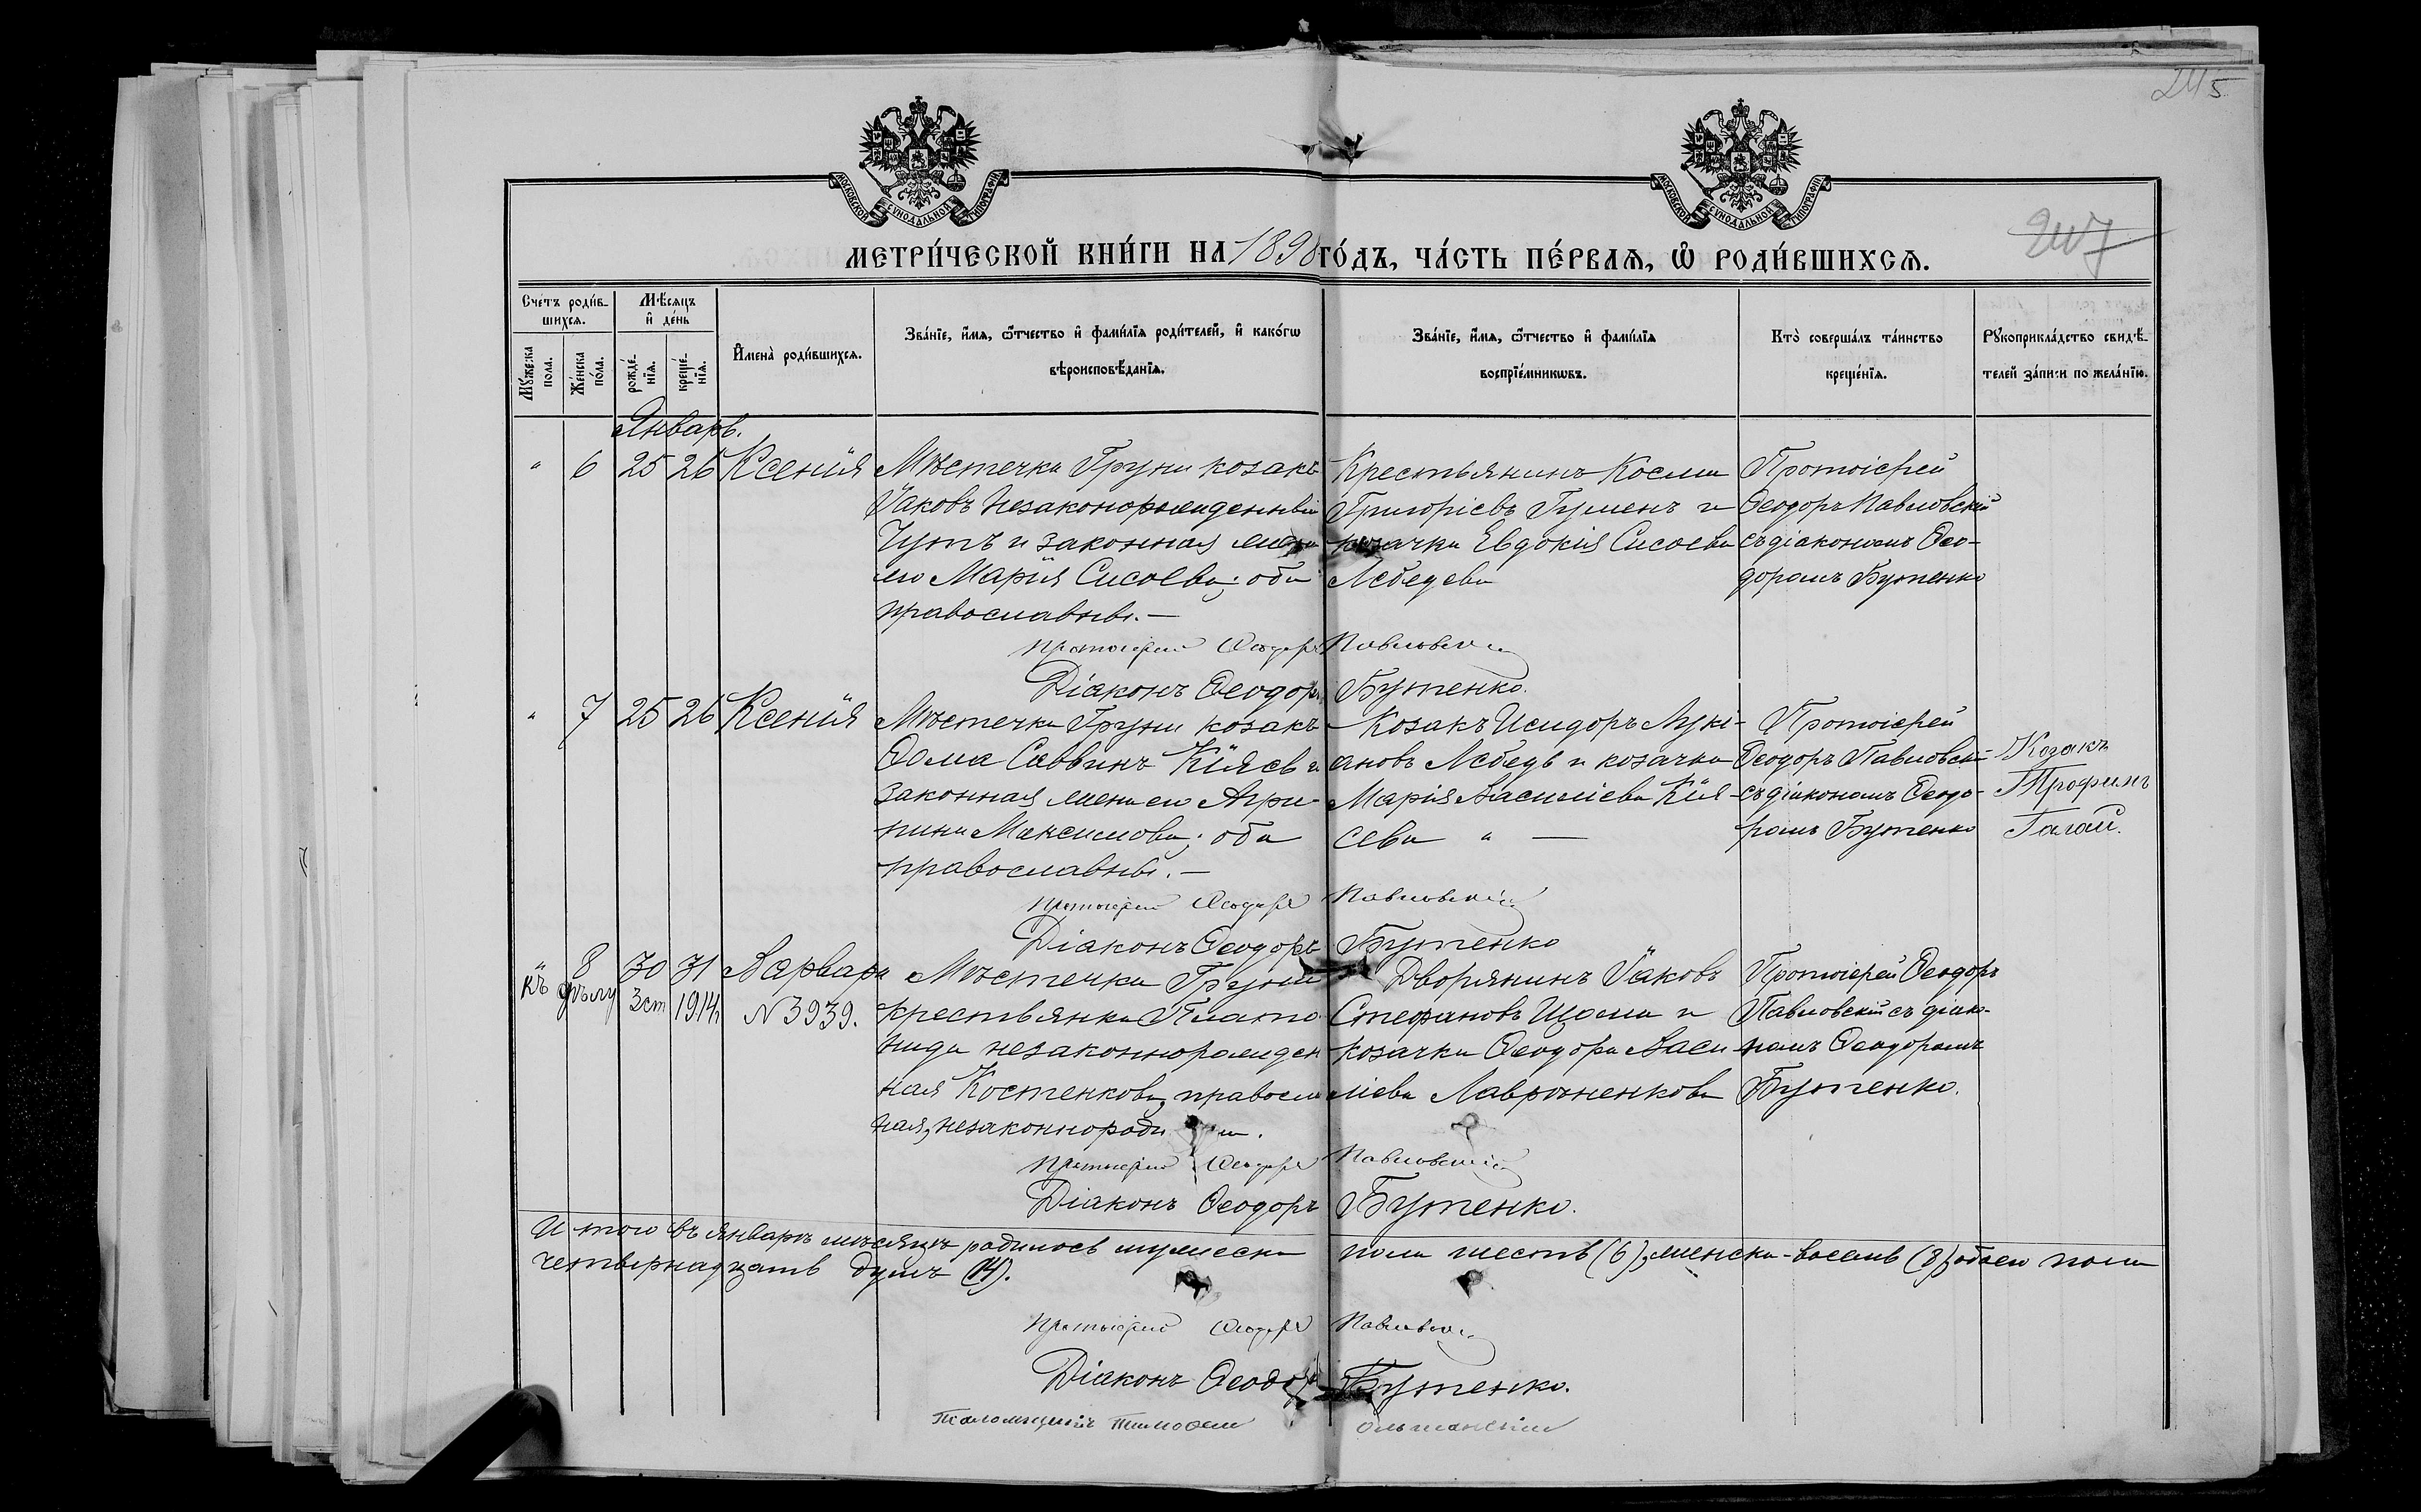 245
247
МОСКОВСКОЙ СѴНОДАЛЬНОЙ ТИПОГРАФІИ
МОСКОВСКОЙ СѴНОДАЛЬНОЙ ТИПОГРАФІИ
МЕТРИ́ЧЕСКОЙ КНИ́ГИ НА 1898 ГО́ДЪ, ЧА́СТЬ ПЕ́РВАѦ, Ѡ҆ РОДИ́ВШИХСѦ.
Сче́тъ роди́в-
шихсѧ.
Мѣ́сѧцъ
и҆ де́нь
Мꙋ́жеска пола.
Же́нска по́ла.
рожде́-
нїѧ.
креще́-
нїѧ.
И҆мена̀ роди́вшихсѧ.
Зва́нїе, и҆́мѧ, ѻ҆́тчество и҆ фами́лїѧ роди́телей, и҆ како́гѡ
вѣроисповѣ́данїѧ.
Зва́нїе, и҆́мѧ, ѻ҆́тчество и҆ фами́лїѧ
воспрїе́мникѡвъ.
Кто̀ соверша́лъ та́инство
креще́нїѧ.
Рꙋкоприкла́дство свидѣ́-
телей за́писи по жела́нїю.
Январь.
" 6 25 26 Ксенія
Мѣстечка Груни козакъ
Іаковъ незаконорожденный
Чутъ и законная жена
его Марія Сисоева; оба
православны. —
Крестьянинъ Косма
Григоріевъ Гуменъ и
козачка Евдокія Сисоева
Лебедева
Протоіерей
Ѳеодоръ Павловскій
съ діакономъ Ѳео-
доромъ Бутенко
Протоіерей Ѳеодоръ Павловскій
Діаконъ Ѳеодоръ Бутенко.
" 7 25 26 Ксенія
Мѣстечка Груни козакъ
Ѳома Саввинъ Кіяевъ и
законная жена его Агри-
пина Максимова; оба
православны. —
Козакъ Исидоръ Лукі-
ановъ Лебедь и козачка
Марія Васильева Кія-
сева " —
Протоіерей
Ѳеодоръ Павловскій
съ діакономъ Ѳеодо-
ромъ Бутенко
Козакъ
Трофимъ
Гагай.
Протоіерей Ѳеодоръ Павловскій
Діаконъ Ѳеодоръ Бутенко
" 8 30 31 Варвара
Къ дѣлу 3 ст 1914 г № 3939.
Мѣстечка Груни
крестьянка Плато-
нида незаконнорожден
ная Костенкова, правосла
ная, незаконнород
Дворянинъ Іаковъ
Стефановъ Щома и
козачка Ѳеодора Васи
ліева Лавроненкова
Протоіерей Ѳеодоръ
Павловскій съ діако-
номъ Ѳеодоромъ
Бутенко.
Протоіерей Ѳеодоръ Павловскій
Діаконъ Ѳеодоръ Бутенко.
Итого въ январѣ мѣсяцѣ родилось мужеска пола шесть (6), женска - восемь (8) обоего пола
четырнадцать душъ (14).
Протоіерей Ѳеодоръ Павловскій
Діаконъ Ѳеодоръ Бутенко.
Псаломщикъ Тимоѳей Ольшанскій